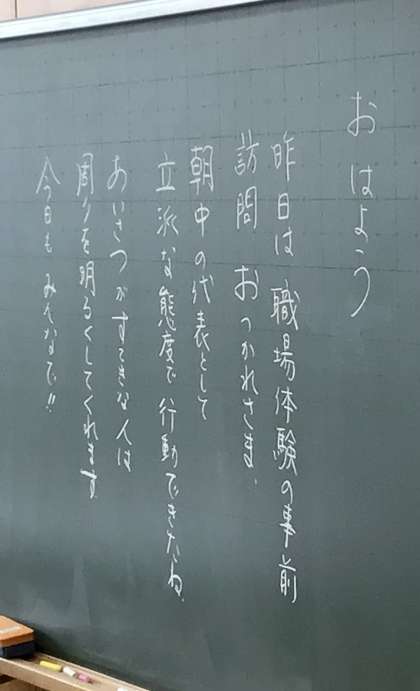 おはよう
昨日は職場体験の事前
訪問おつかれさま、
朝中の代表として
立派な態度で行動できたね。
あいさつがすてきな人は
周りを明るくしてくれます。
今日もみんなで!!